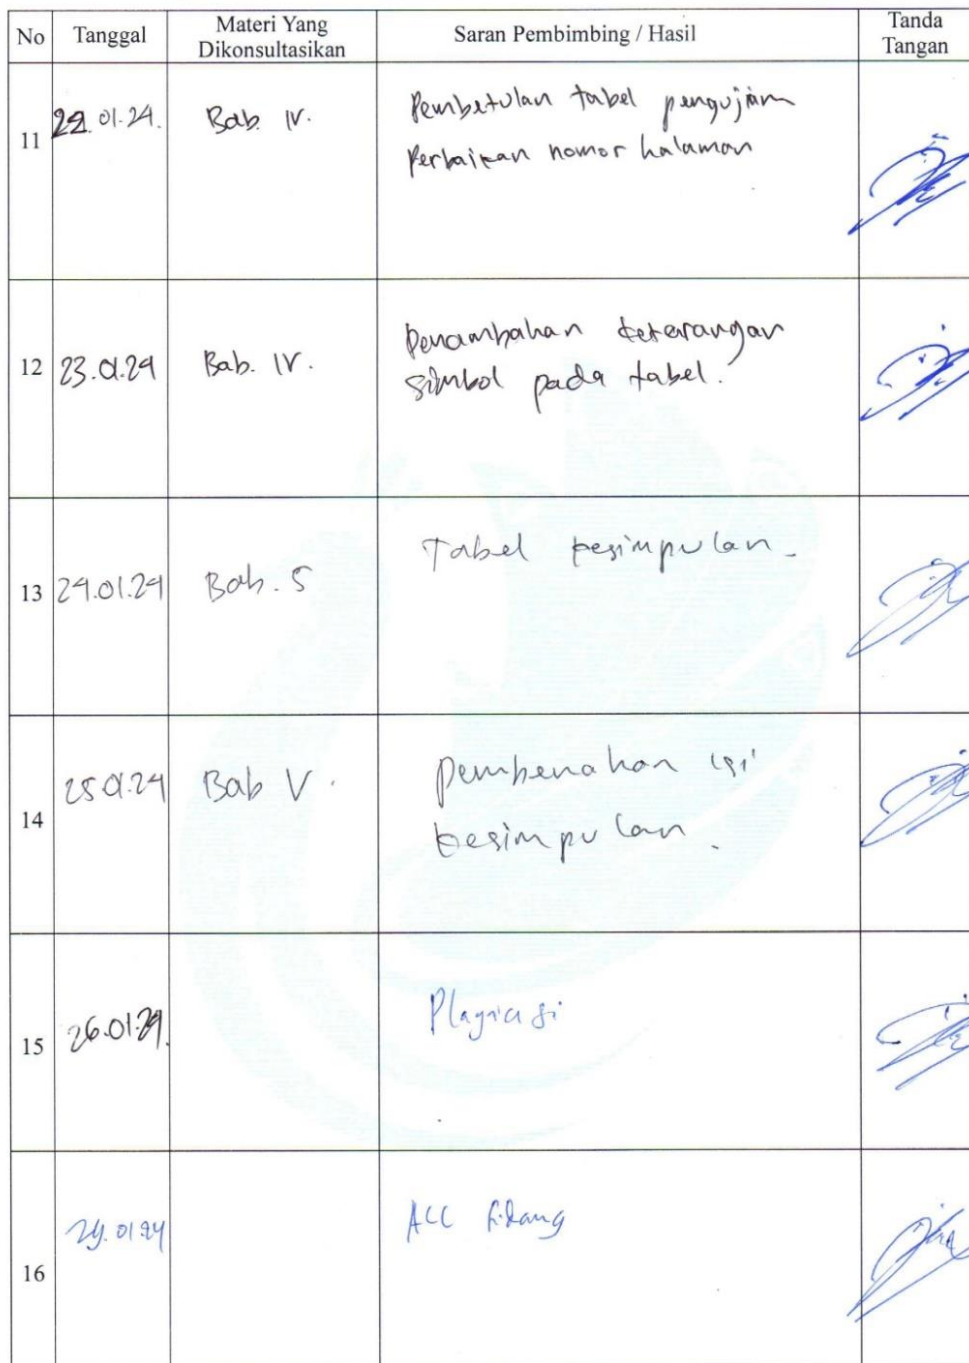 No Tanggal Materi Yang Dikonsultasikan Saran Pembimbing / Hasil Tanda Tangan
11 22.01.24. Bab. IV. Pembetulan tabel pengujian
Perbaikan nomor halaman
12 23.01.24 Bab. IV. Penambahan keterangan
simbol pada tabel.
13 24.01.24 Bab. 5 Tabel kesimpulan.
14 25.01.24 Bab V. Pembenahan isi
kesimpulan.
15 26.01.24. Plagiasi
16 29.01.24 ACC Sidang